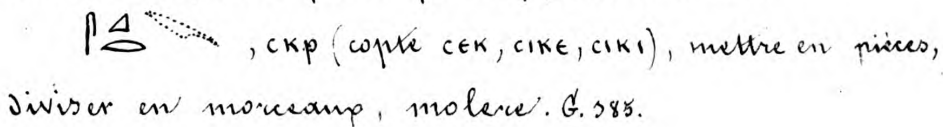 𓋴𓈎𓂋 , ⲥⲕⲣ (copte ⲥⲉⲕ, ⲥⲓⲕⲉ, ⲥⲓⲕⲓ), mettre en pièces,
diviser en morceaux, molere. G. 385.